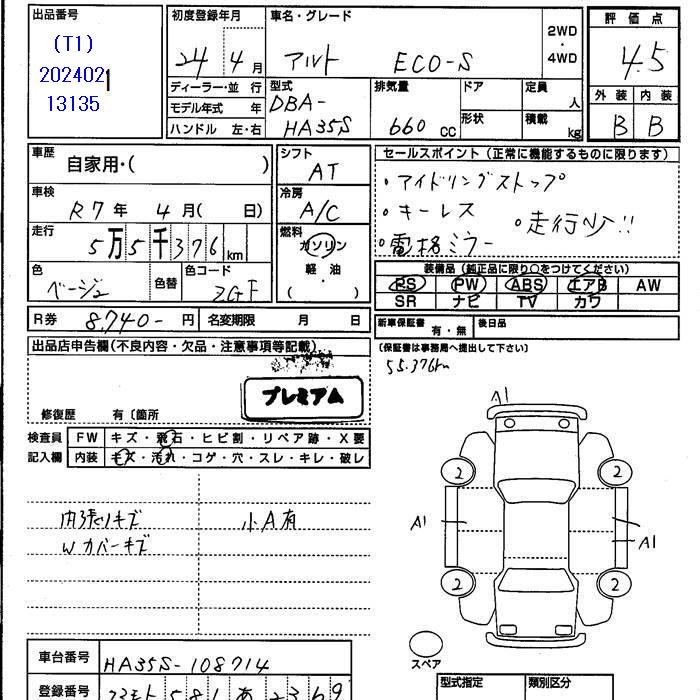 出品番号
(T1)
2024021
13135
初度登録年月
24年 4月
車名・グレード
アルト ECO-S
2WD
・
4WD
ディーラー・並 行
モデル年式 年
ハンドル 左・右
型式
DBA-
HA35S
排気量
660 CC
ドア
形状
定員
人
積載
kg
評 価 点
4.5
外 装 内 装
B B
車歴
自家用・( )
車検
R7年 4月( 日)
走行
5万5千376km
色
ベージュ
色替
色コード
ZGF
シフト
AT
冷房
A/C
燃料
ガソリン
軽・油
( )
セールスポイント(正常に機能するものに限ります)
・アイドリングストップ
・キーレス
・走行少!!
・電格ミラー
装備品(純正品に限り○をつけてください)
PS PW ABS エアB AW
SR ナビ TV カワ
R券 8,740- 円 名変期限 月 日
新車保証書 有・無 後日品
(保証書は事務局へ提出して下さい)
55.376km
出品店申告欄(不良内容・欠品・注意事項等記載)
プレミアム
修復歴 有〔箇所
検査員
記入欄
FW キズ・飛石・ヒビ割・リペア跡・X要
内装 キズ・汚れ・コゲ・穴・スレ・キレ・破レ
内張りキズ
小A有
Wカバーキズ
A1
2 2
A1 A1
2 2
スペア
車台番号 HA35S-108714
型式指定 類別区分
登録番号
581 あ 2369